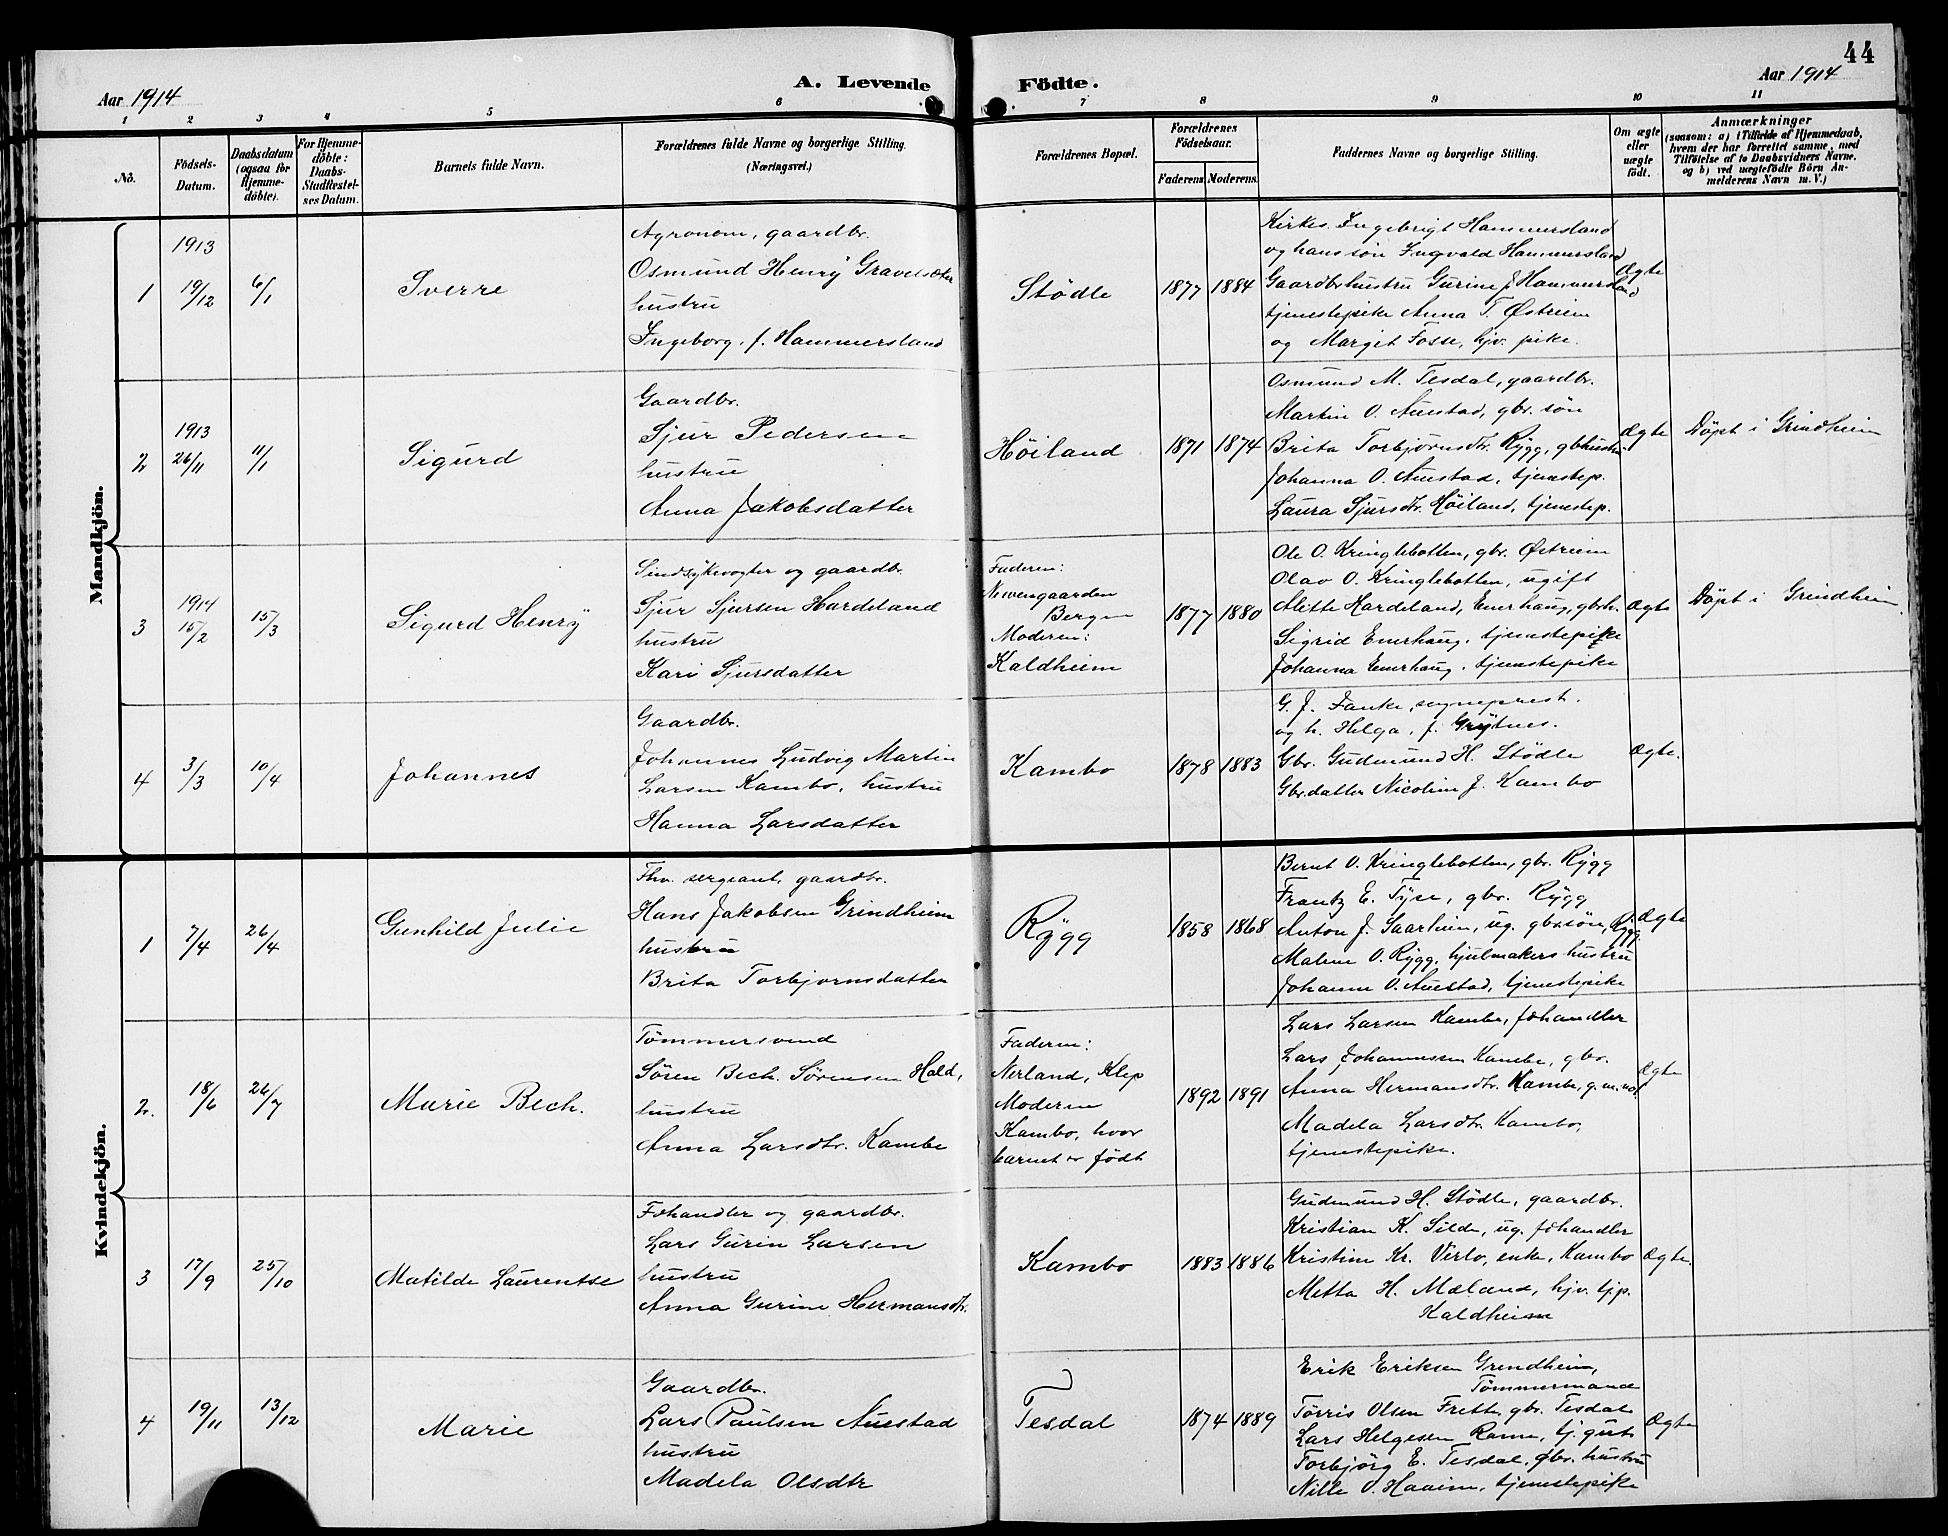 44
Aar 1914
A. Levende
Födte.
Aar 1914
1 2 3 4 5 6 7 8 9 10 11
No.
Födsels-
Datum.
Daabsdatum
(ogsaa for
Hjemme-
döbte).
For Hjemme-
döbte:
Daabs-
Stadfæstel-
ses Datum.
Barnets fulde Navn.
Forældrenes fulde Navne og borgerlige Stilling.
(Næringsvei.)
Forældrenes Bopæl.
Forældrenes
Födselsaar.
Faderens. Moderens.
Faddernes Navne og borgerlige Stilling.
Om ægte
eller
uægte
födt.
Anmærkninger
(saasom: a) i Tilfælde af Hjemmedaab,
hvem der har forrettet samme, med
Tilföielse af to Daabsvidners Navne.
og b) ved uægtefödte Börn An-
melderens Navn m. V.)
Mandkjön.
1
1913
19/12
6/1
Sverre
Agronom, gaardbr.
Osmund Henry Gravelsæter
hustru
Ingeborg, f. Hammersland
Stödle
1877 1884
Kirkes. Ingebrigt Hammersland
og hans søn Ingvald Hammersland
Gaardbrhustru Gurine J. Hammersland
tjenestepike Anna T. Østreim
og Margit Fosse, hjv. pike.
Ægte
2
1913
26/11
11/1
Sigurd
Gaardbr.
Sjur Pedersen
hustru
Anna Jakobsdatter
Høiland
1871 1874
Osmund M. Tesdal, gaardbr.
Martin O. Auestad, gbr. søn
Brita Torbjørnsdtr. Rygg, gbhustru
Johanna O. Auestad, tjenestep.
Laura Sjursdtr. Høiland, tjenestep.
Ægte
Døpt i Grindheim
3
1914
15/2
15/3
Sigurd Henry
Sindsykevogter og gaardbr.
Sjur Sjursen Hardeland
hustru
Kari Sjursdatter
Faderen:
Nevengaarden
Bergen
Moderen:
Kaldheim
1877 1880
Ole O. Kringlebotten, gbr. Østreim
Olav O. Kringlebotten, ugift
Alette Hardeland, Enerhaug, gbrh.
Sigrid Enerhaug, tjenestepike
Johanna Enerhaug, tjenestepike
Ægte
Døpt i Grindheim
4
3/3
10/4
Johannes
Gaardbr.
Johannes Ludvig Martin
Larsen Kambo, hustru
Hanna Larsdatter
Kambo
1878 1883
G. J. Fanke, sogneprest.
og h. Helga, f. Grytnes.
Gbr. Gudmund H. Stödle
Gbr.datter Nicoline J. Kambo
Ægte.
Kvindekjön.
1
7/4
26/4
Gunhild Julie
Fhv. sergeant, gaardbr.
Hans Jakobsen Grindheim
hustru
Brita Torbjørnsdatter
Rygg
1858 1868
Bernt O. Kringlebotten, gbr. Rygg
Frantz E. Tyse, gbr. Rygg
Anton J. Saarheim, ug. gbrsøn, Rygg
Malene O. Rygg, hjulmakers hustru
Johanne O. Auestad, tjenestepike
Ægte
2.
18/6
26/7
Marie Bech.
Tømmersvend
Søren Bech. Sørensen Hald,
hustru
Anna Larsdtr. Kambe
Faderen:
Nerland, Klep
Moderen
Kambo, hvor
barnet er født
1892 1891
Lars Larsen Kambe, fehandler
Lars Johannessen Kambe, gbr.
Anna Hermansdtr. Kambe,
Madela Larsdtr. Kambo,
tjenestepike.
Ægte
3
17/9
25/10
Matilde Laurentse
Fehandler og gaardbr.
Lars Gurin Larsen
hustru
Anna Gurine Hermansdtr.
Kambo
1883 1886
Gudmund H. Stödle, gaardbr.
Kristian K. Silde, ug. fehandler
Kristine Kr. Virlo, enke, Kambo
Metta H. Mæland, hjv. tjp.
Kaldheim
Ægte.
4
19/11
13/12
Marie
Gaardbr.
Lars Paulsen Auestad
hustru
Madela Olsdtr
Tesdal
1874 1889
Erik Eriksen Grendheim,
Tømmermand
Tørris Olsen Frette gbr. Tesdal
Lars Helgesen Ramn, tj. gut
Torbjörg E. Tesdal, gbr. hustru
Nille O. Haaim, tjenestepike
Ægte